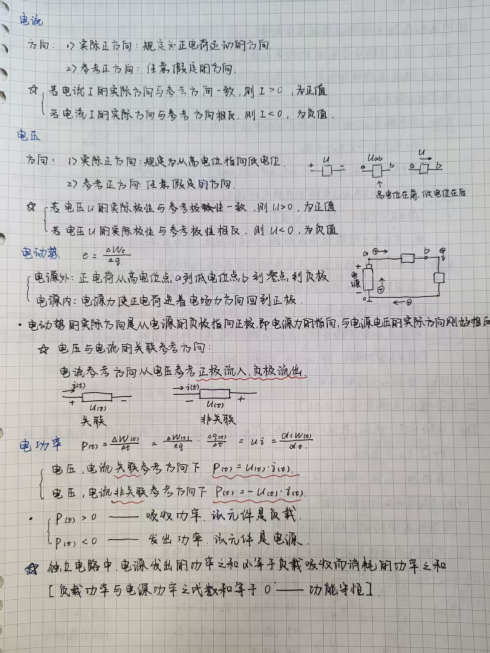 电流
方向: 1) 实际正方向: 规定为正电荷运动的方向.
2) 参考正方向: 任意假定的方向.
☆ { 若电流I的实际方向与参考方向一致, 则 I>0, 为正值
若电流I的实际方向与参考方向相反, 则 I<0, 为负值.
电压
方向: 1) 实际正方向: 规定为从高电位指向低电位. + U - a Uab b a U b
2) 参考正方向: 任意假定的方向. 高电位在前, 低电位在后
☆ { 若电压U的实际极性与参考极性一致, 则 U>0, 为正值
若电压U的实际极性与参考极性相反, 则 U<0, 为负值
电动势 e=
{ 电源外: 正电荷从高电位点a到低电位点b到 到负极 a b
电源内: 电源力使正电荷逆着电场力方向回到正极. 电源
• 电动势的实际方向是从电源的负极指向正极, 即电源力的指向, 与电源电压的实际方向刚好相反
☆ 电压与电流的关联参考方向:
电流参考方向从电压参考正极流入, 负极流出.
→ i(t) → i(t)
+ U(t) - - U(t) +
关联 非关联
电功率 P(t) = ΔW(t)/Δt = ΔW(t)/Δq · Δq(t)/Δt = ui = dW(t)/dt
{ 电压, 电流关联参考方向下 P(t)=U(t)·i(t).
电压, 电流非关联参考方向下 P(t)=-U(t)·i(t).
• { P(t)>0 —— 吸收功率. 该元件是负载.
P(t)<0 —— 发出功率, 该元件是电源.
☆ 独立电路中, 电源发出的功率之和必等于负载吸收而消耗的功率之和
[负载功率与电源功率之代数和等于0 —— 功能守恒].